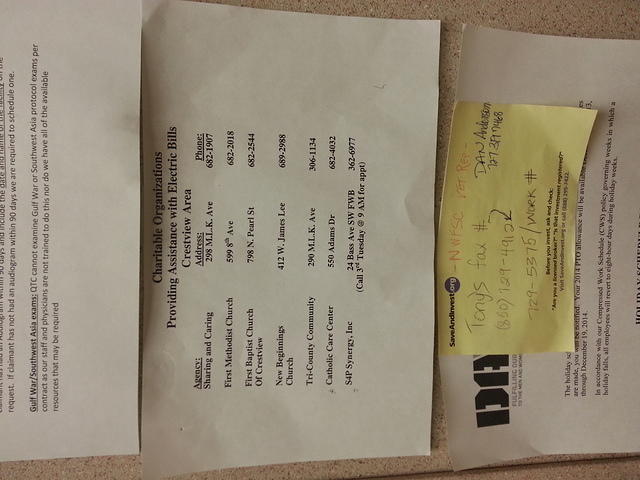 request. If claimant has not had an audiogram within 90 days we are required to schedule one.
Gulf War/Southwest Asia exams: QTC cannot examine Gulf War or Southwest Asia protocol exams per
contract as our staff and physicians are not trained to do this nor do we have all of the available
resources that may be required
Charitable Organizations
Providing Assistance with Electric Bills
Crestview Area
Agency: Address: Phone:
Sharing and Caring 298 M.L.K. Ave 682-1907
First Methodist Church 599 8th Ave 682-2018
First Baptist Church 798 N. Pearl St 682-2544
Of Crestview
New Beginnings 412 W. James Lee 689-2988
Church
Tri-County Community 290 M.L.K. Ave 306-1134
Catholic Care Center 550 Adams Dr 682-4032
S4P Synergy, Inc 24 Bass Ave SW FWB 362-6977
(Call 3rd Tuesday @ 9 AM for appt)
SaveAndInvest.org
Tony's fax #
(850) 729-4912
729-5375/WORK #
DAN Anderson
Before you invest, ask and check:
"Are you a licensed broker?" "Is that investment registered?"
Visit SaveAndInvest.org or call (888) 295-7422.
FULFILLING OUR
The holiday
are made, you will be notified. Your 2014 PTO allowance will be available
through December 19, 2014.
In accordance with our Compressed Work Schedule (CWS) policy governing weeks in which a
holiday falls, all employees will revert to eight-hour days during holiday weeks.